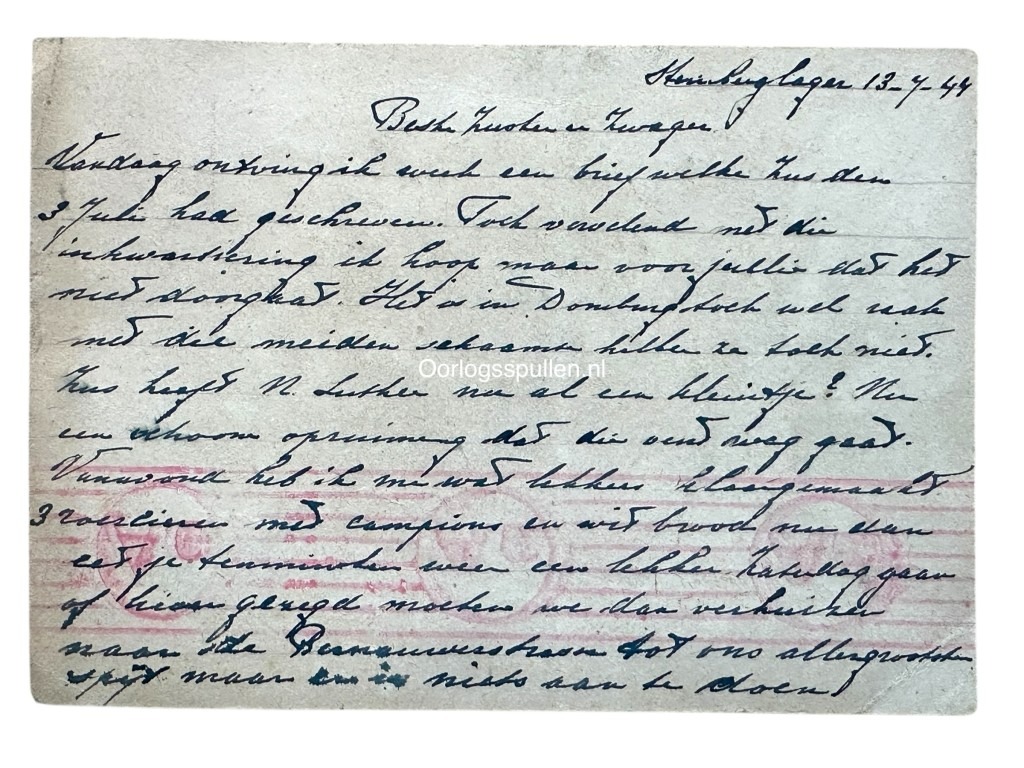 Sternberglager 13-7-44
Beste Zuster en Zwager.
Vandaag ontving ik weer een brief welke Zus den
3 Juli had geschreven. Toch vervelend met die
inkwartiering ik hoop maar voor jullie dat het
niet doorgaat. Het is in Domburg toch wel raak
met die meiden schaamte hebben ze toch niet.
Oorlogsspullen.nl
Zus heeft N. Luther nu al een kleintje? Nu
een schoone opruiming dat die vent weg gaat.
Vanavond heb ik me wat lekkers klaargemaakt
3 met campions en wit brood nu dan
eet je tenminsten weer een lekker Zaterdag gaan
of gezegd moeten we dan verhuizen
naar de tot ons allergrootsten
spijt maar er is niets aan te doen